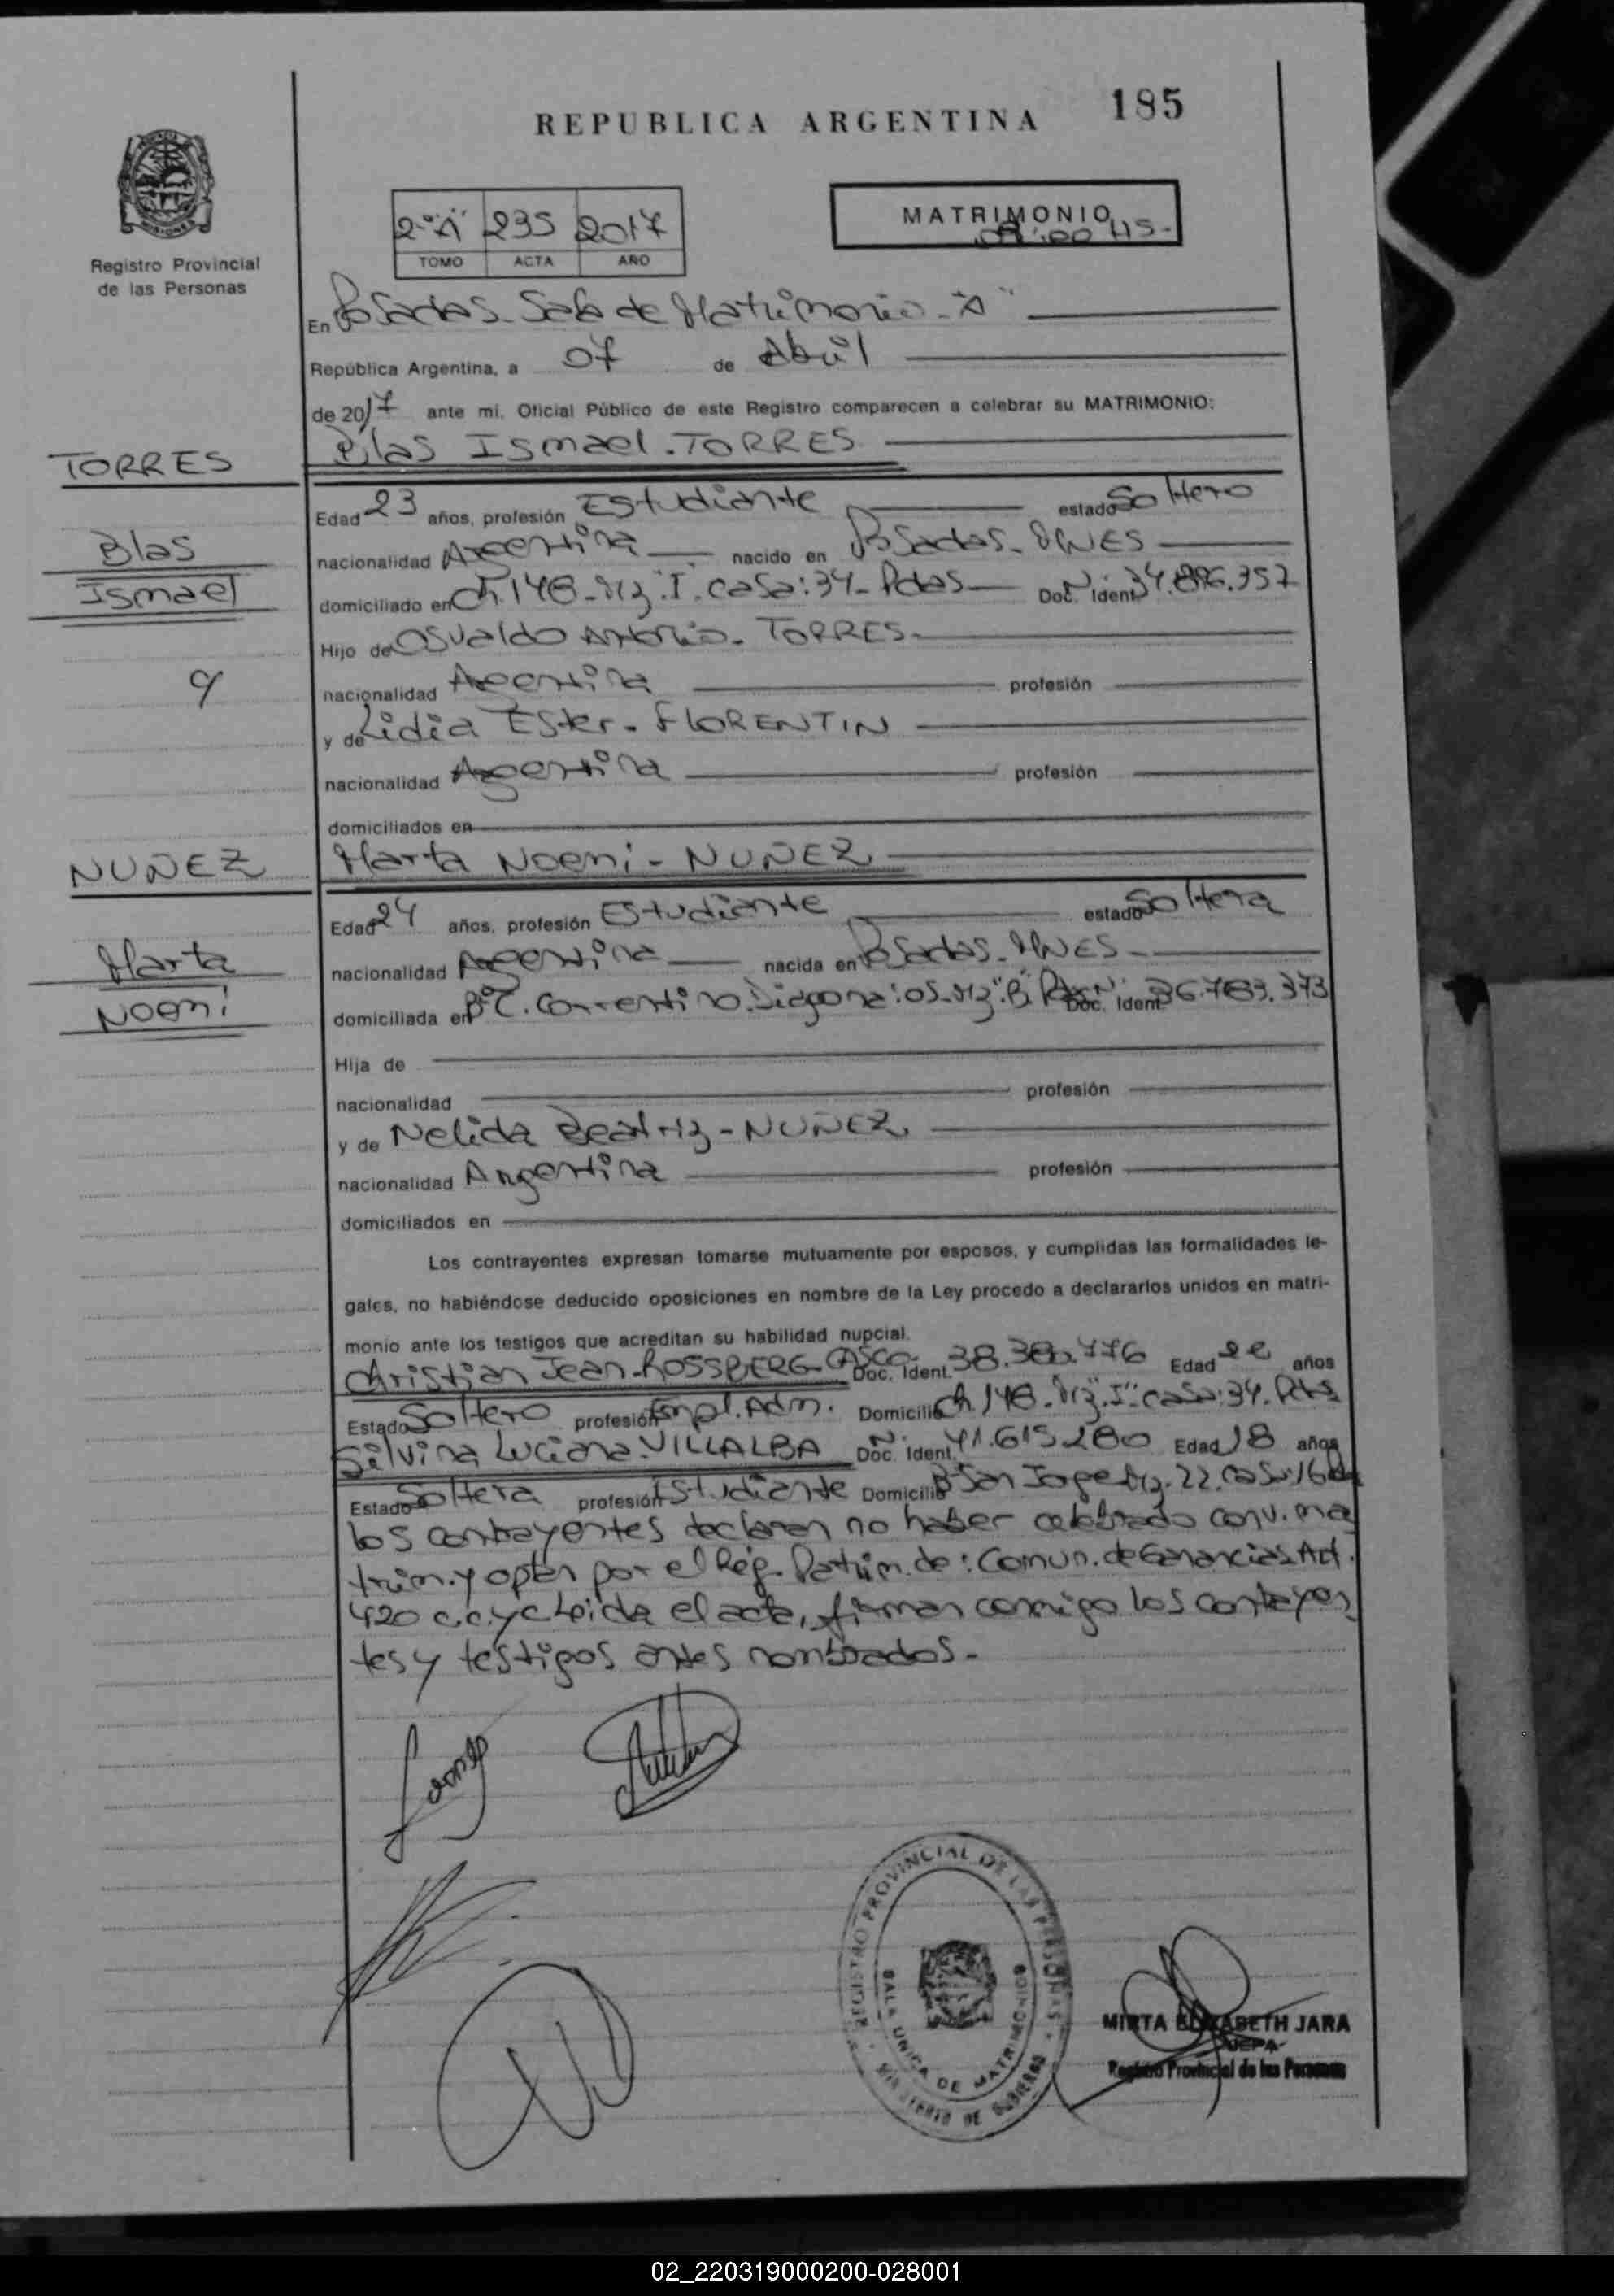 REPUBLICA ARGENTINA 185
2º"A" 235 2017
TOMO ACTA AÑO
MATRIMONIO
09:00 HS-
Registro Provincial
de las Personas
En Posadas. Sala de Matrimonio - "A"
República Argentina, a 07 de Abril
de 2017 ante mí, Oficial Público de este Registro comparecen a celebrar su MATRIMONIO:
TORRES
Blas Ismael. TORRES
Edad 23 años, profesión Estudiante estado Soltero
Blas
nacionalidad Argentina nacido en Posadas. MNES
Ismael
domiciliado en Ch. 148. Mz. "I". casa: 34 - Pdas Doc. Ident. Nº 34.896.357
Hijo de Osvaldo Antonio. TORRES.
y
nacionalidad Argentina profesión
y de Lidia Ester. FLORENTIN
nacionalidad Argentina profesión
domiciliados en
NUÑEZ
Marta Noemi - NUÑEZ
Edad 24 años, profesión Estudiante estado Soltera
Marta
nacionalidad Argentina nacida en Posadas. MNES
Noemi
domiciliada en Bº C. Correntino. Diagonal: 05. Mz "B" Doc. Ident. Nº 36.783.373
Hija de
nacionalidad profesión
y de Nelida Beatriz - NUÑEZ.
nacionalidad Argentina profesión
domiciliados en
Los contrayentes expresan tomarse mutuamente por esposos, y cumplidas las formalidades le-
gales, no habiéndose deducido oposiciones en nombre de la Ley procedo a declararlos unidos en matri-
monio ante los testigos que acreditan su habilidad nupcial.
Christian Jean. ROSSBERG CASCO. Doc. Ident. 38.380.776 Edad 22 años
Estado Soltero profesión Empl. Adm. Domicilio Ch. 148. Mz. "I": casa: 34. Pdas
Silvina Luciana. VILLALBA Doc. Ident. Nº 41.615.280 Edad 18 años
Estado Soltera profesión Estudiante Domicilio Bº San Jorge Mz. 22. casa: 16
los contrayentes declaran no haber celebrado conv. ma
trim. y optan por el Rég. Patrim. de: Comun. de Ganancias Art.
420 c.c.yc Leida el acta, firman conmigo los contrayen
tes y testigos antes nombrados.-
REGISTRO PROVINCIAL DE LAS PERSONAS
SALA UNICA DE MATRIMONIOS
MINISTERIO DE GOBIERNO
MIRTA ELIZABETH JARA
JEFA
Registro Provincial de las Personas
02_220319000200-028001